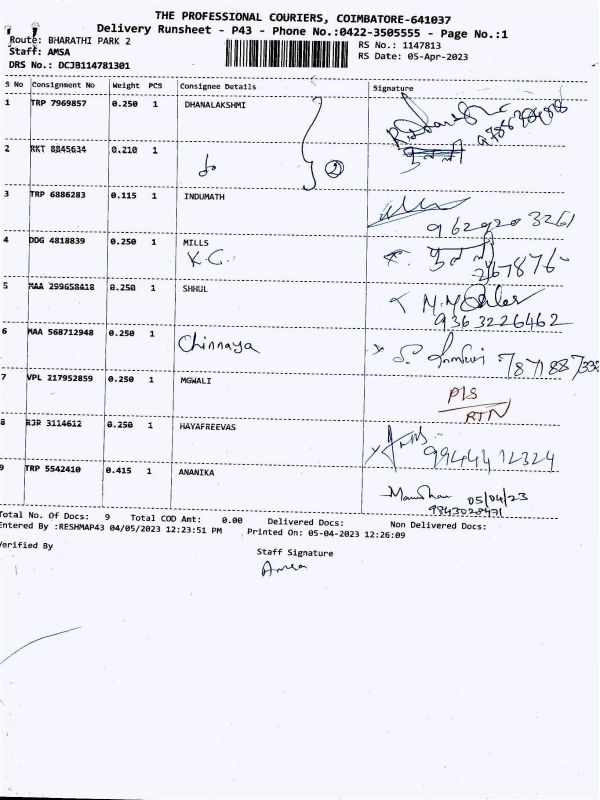 THE PROFESSIONAL COURIERS, COIMBATORE-641037
Delivery Runsheet - P43 - Phone No.:0422-3505555 - Page No.:1
Route: BHARATHI PARK 2
RS No.: 1147813
Staff: AMSA
RS Date: 05-Apr-2023
DRS No.: DCJB114781301
S No Consignment No Weight PCS Consignee Details Signature
1 TRP 7969857 0.250 1 DHANALAKSHMI
2 RKT 8845634 0.210 1
②
3 TRP 6886283 0.115 1 INDUMATH
9629203261
4 DDG 4818839 0.250 1 MILLS
K.G.
267876
5 MAA 299658418 0.250 1 SHHUL
9363226462
6 MAA 568712948 0.250 1
Chinnaya
7 VPL 217952859 0.250 1 MGWALI
PLS
RTN
8 RJR 3114612 0.250 1 HAYAFREEVAS
9944412324
9 TRP 5542410 0.415 1 ANANIKA
05/04/23
Total No. Of Docs: 9 Total COD Amt: 0.00 Delivered Docs: Non Delivered Docs:
Entered By :RESHMAP43 04/05/2023 12:23:51 PM Printed On: 05-04-2023 12:26:09
Verified By
Staff Signature
Amsa